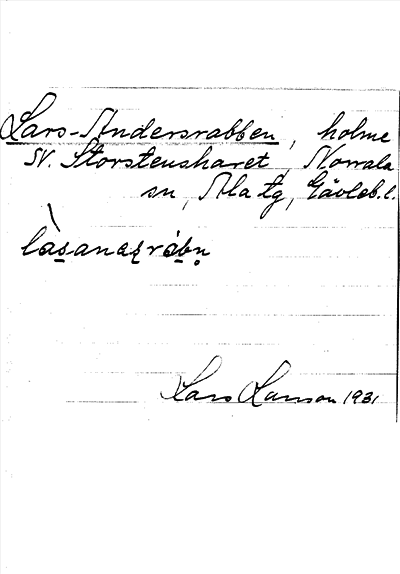 Lars-Andersrabben, holme
SV. Storstensharet, Norrala
sn, Ala tg, Gävleb. l.
Lars Larsson 1931